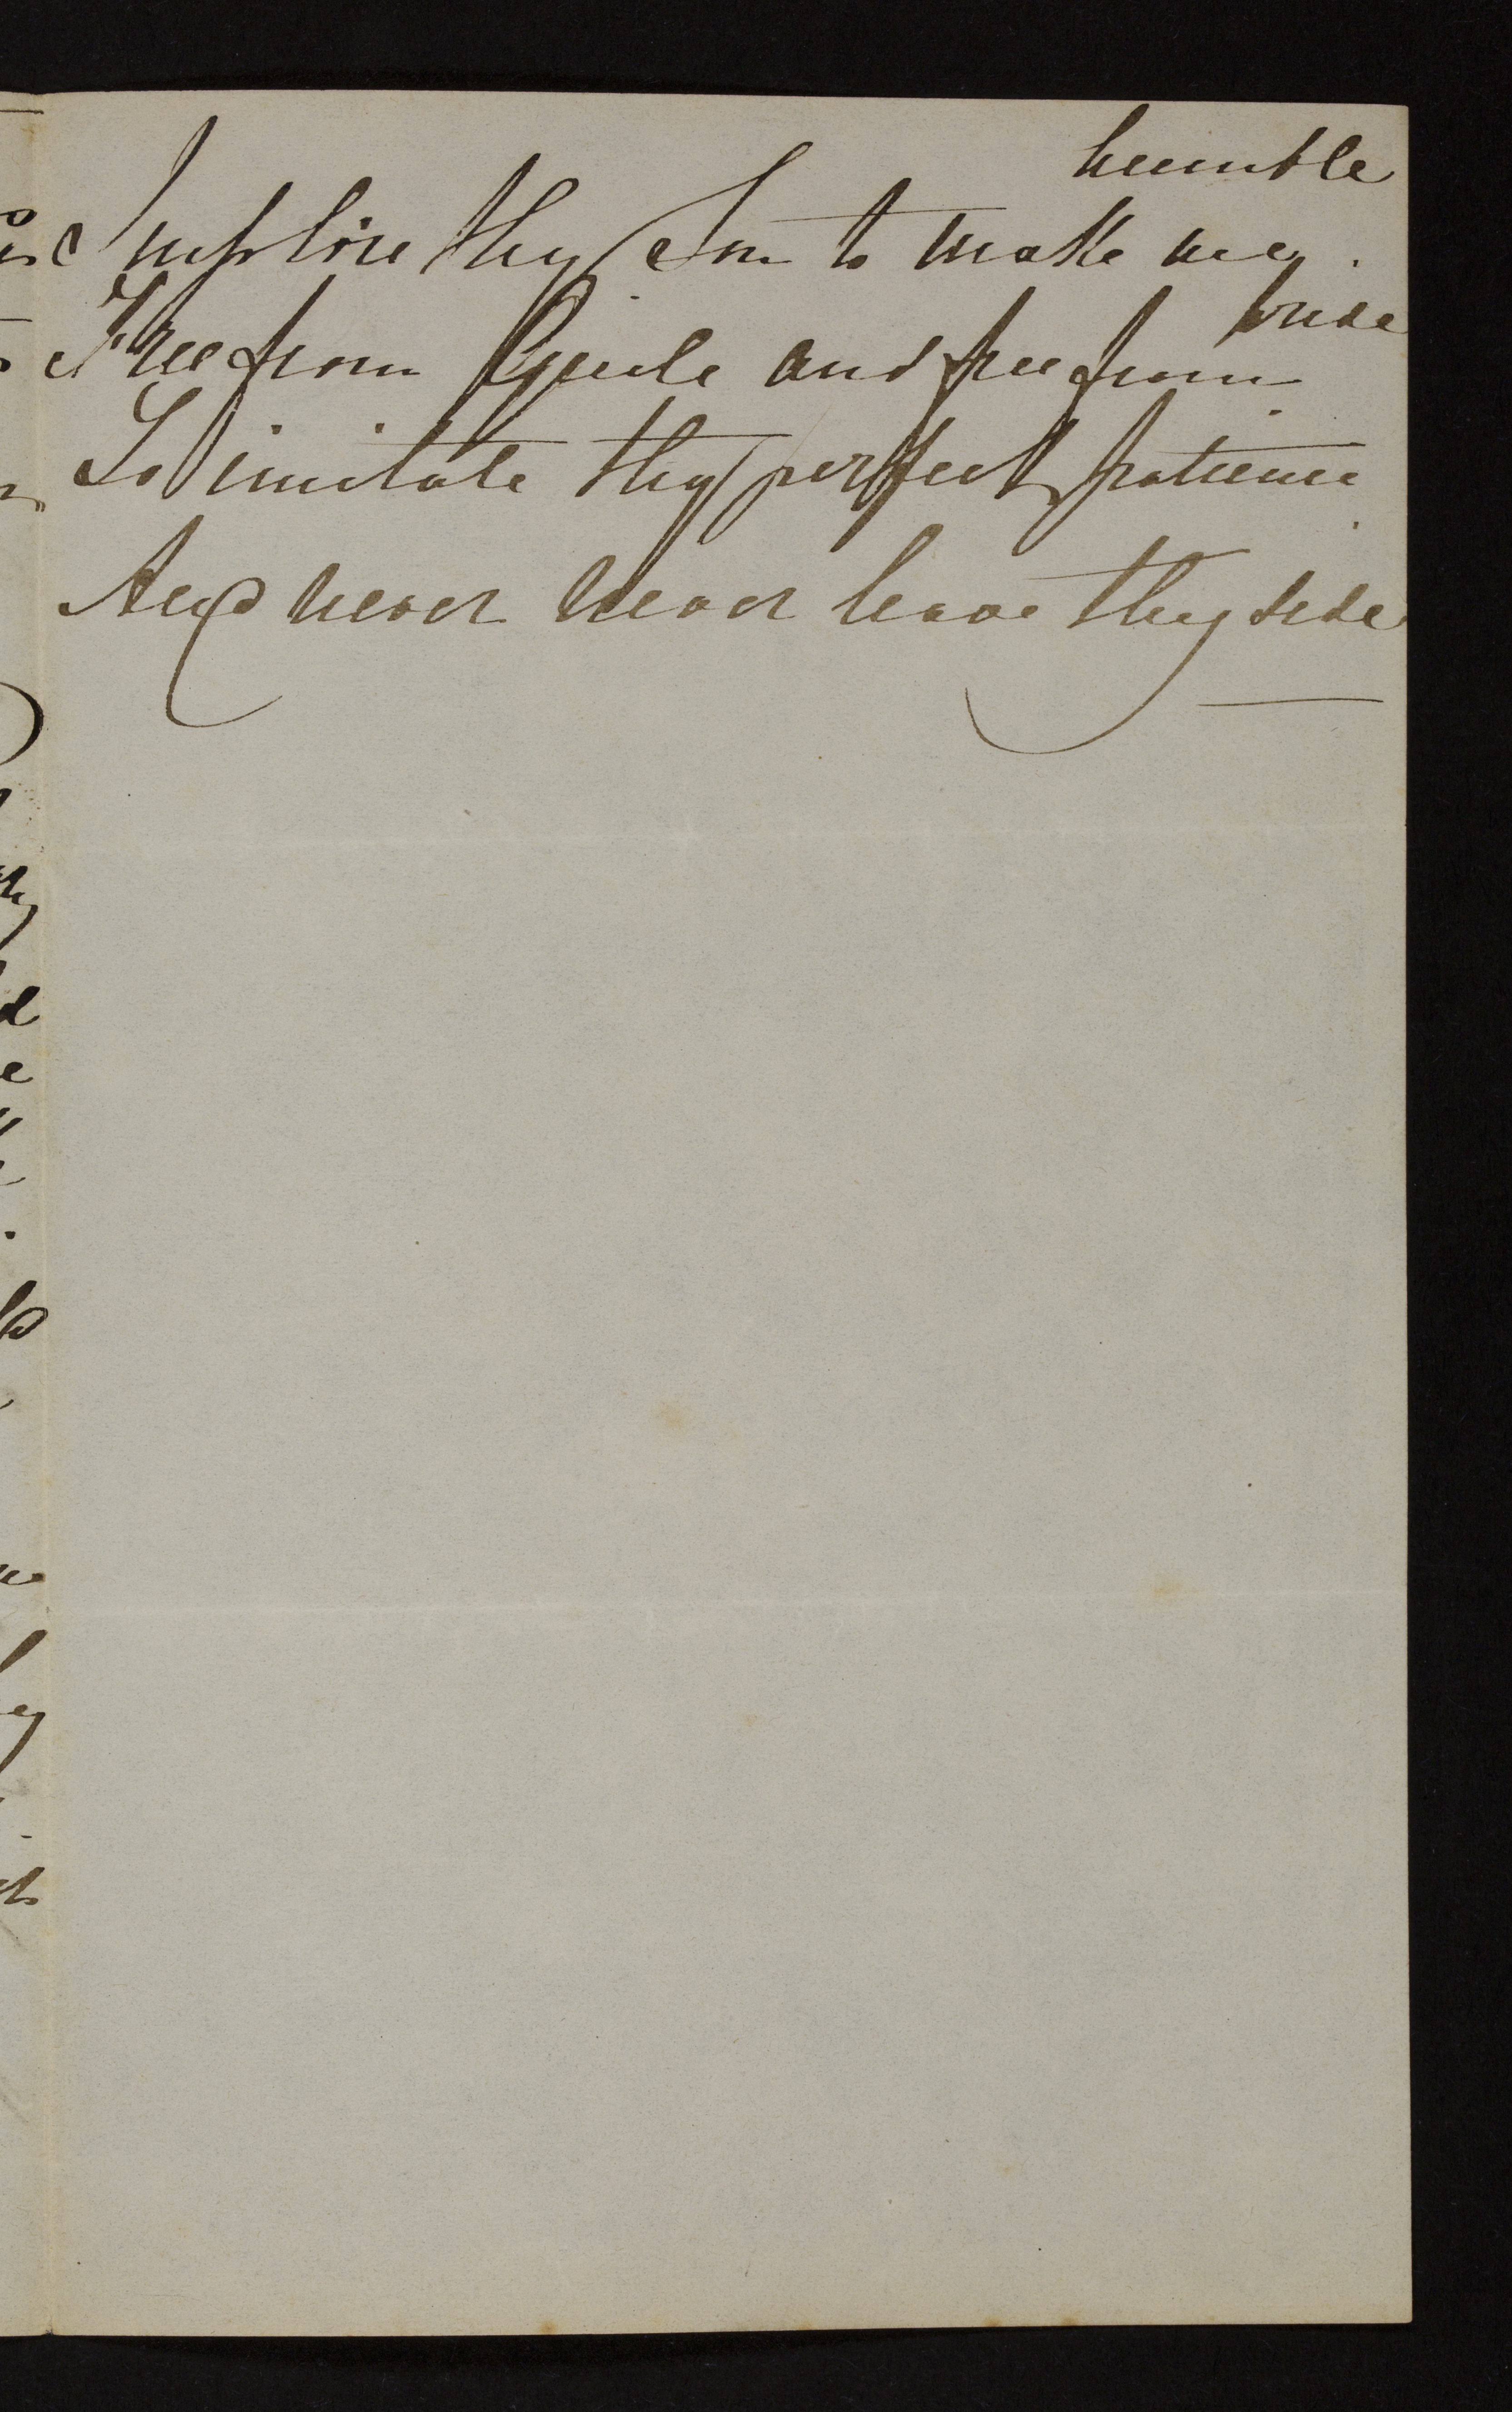 humble
Implore thy Son to make me
pride
Free from Guile and free from
To imitate thy perfect patience
And never never leave thy side